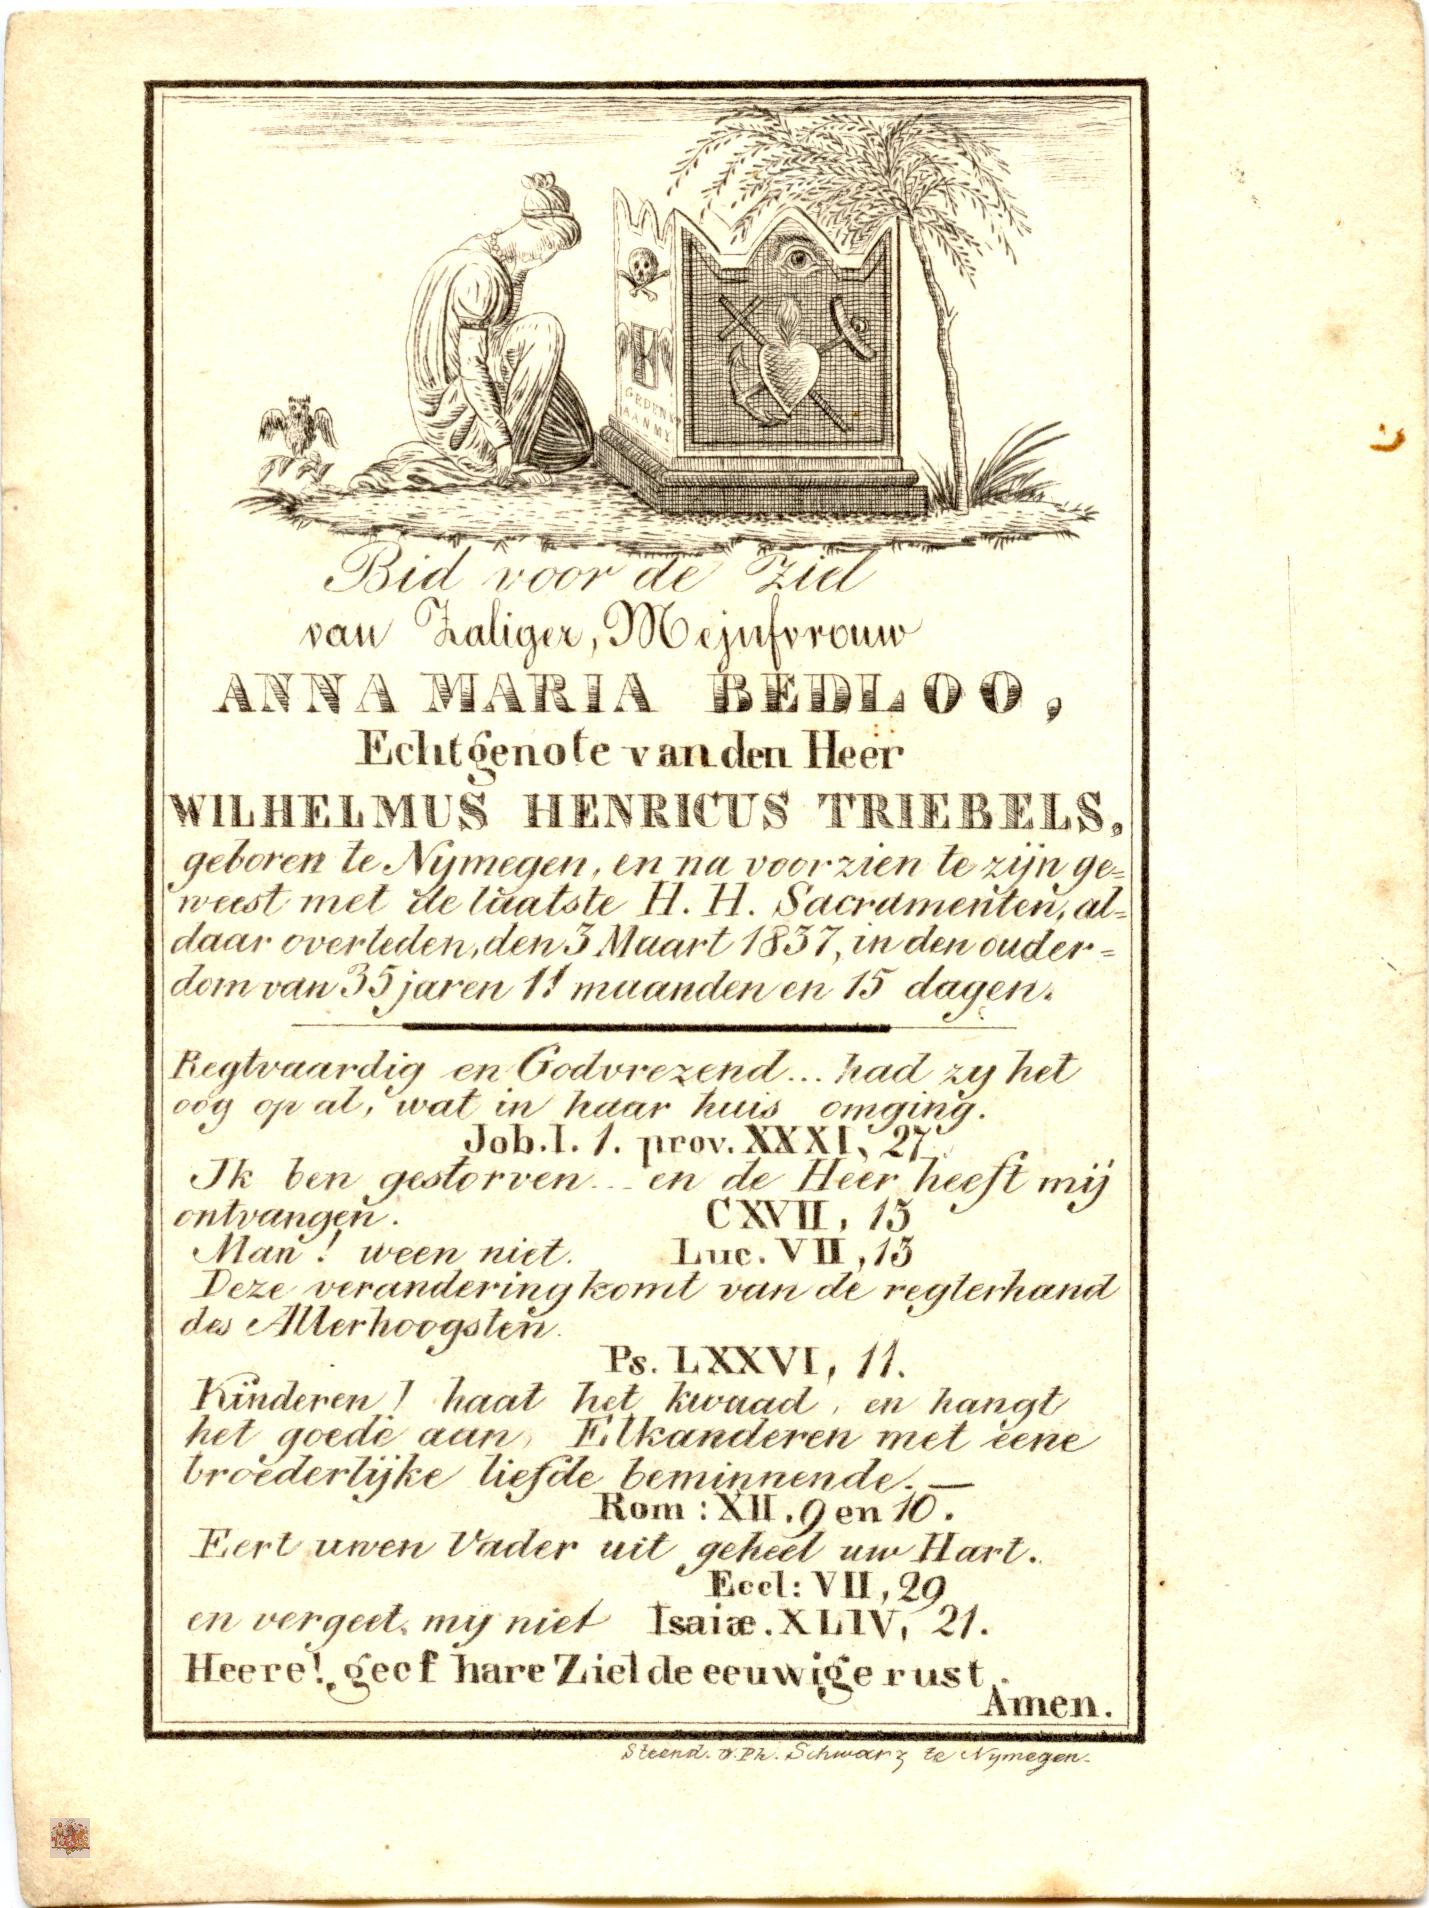 GEDENKT
AAN MY
Bid voor de Ziel
van Zaliger, Mejufvrouw
ANNA MARIA BEDLOO,
Echtgenote van den Heer
WILHELMUS HENRICUS TRIEBELS,
geboren te Nymegen, en na voorzien te zijn ge=
weest met de laatste H. H. Sacramenten, al=
daar overleden, den 3 Maart 1837, in den ouder=
dom van 35 jaren 11 maanden en 15 dagen.
Regtvaardig en Godvrezend... had zy het
oog op al, wat in haar huis omging.
Job. I. 1. prov. XXXI, 27.
Ik ben gestorven... en de Heer heeft mij
ontvangen. CXVII, 13
Man! ween niet. Luc. VII, 13
Deze verandering komt van de regterhand
des Allerhoogsten.
Ps. LXXVI, 11.
Kinderen! haat het kwaad, en hangt
het goede aan, Elkanderen met eene
broederlijke liefde beminnende. —
Rom: XII. 9 en 10.
Eert uwen Vader uit geheel uw Hart.
Eccl: VII, 29
en vergeet my niet Isaiæ. XLIV, 21.
Heere! geef hare Ziel de eeuwige rust.
Amen.
Steend. v. Ph. Schwarz te Nymegen.